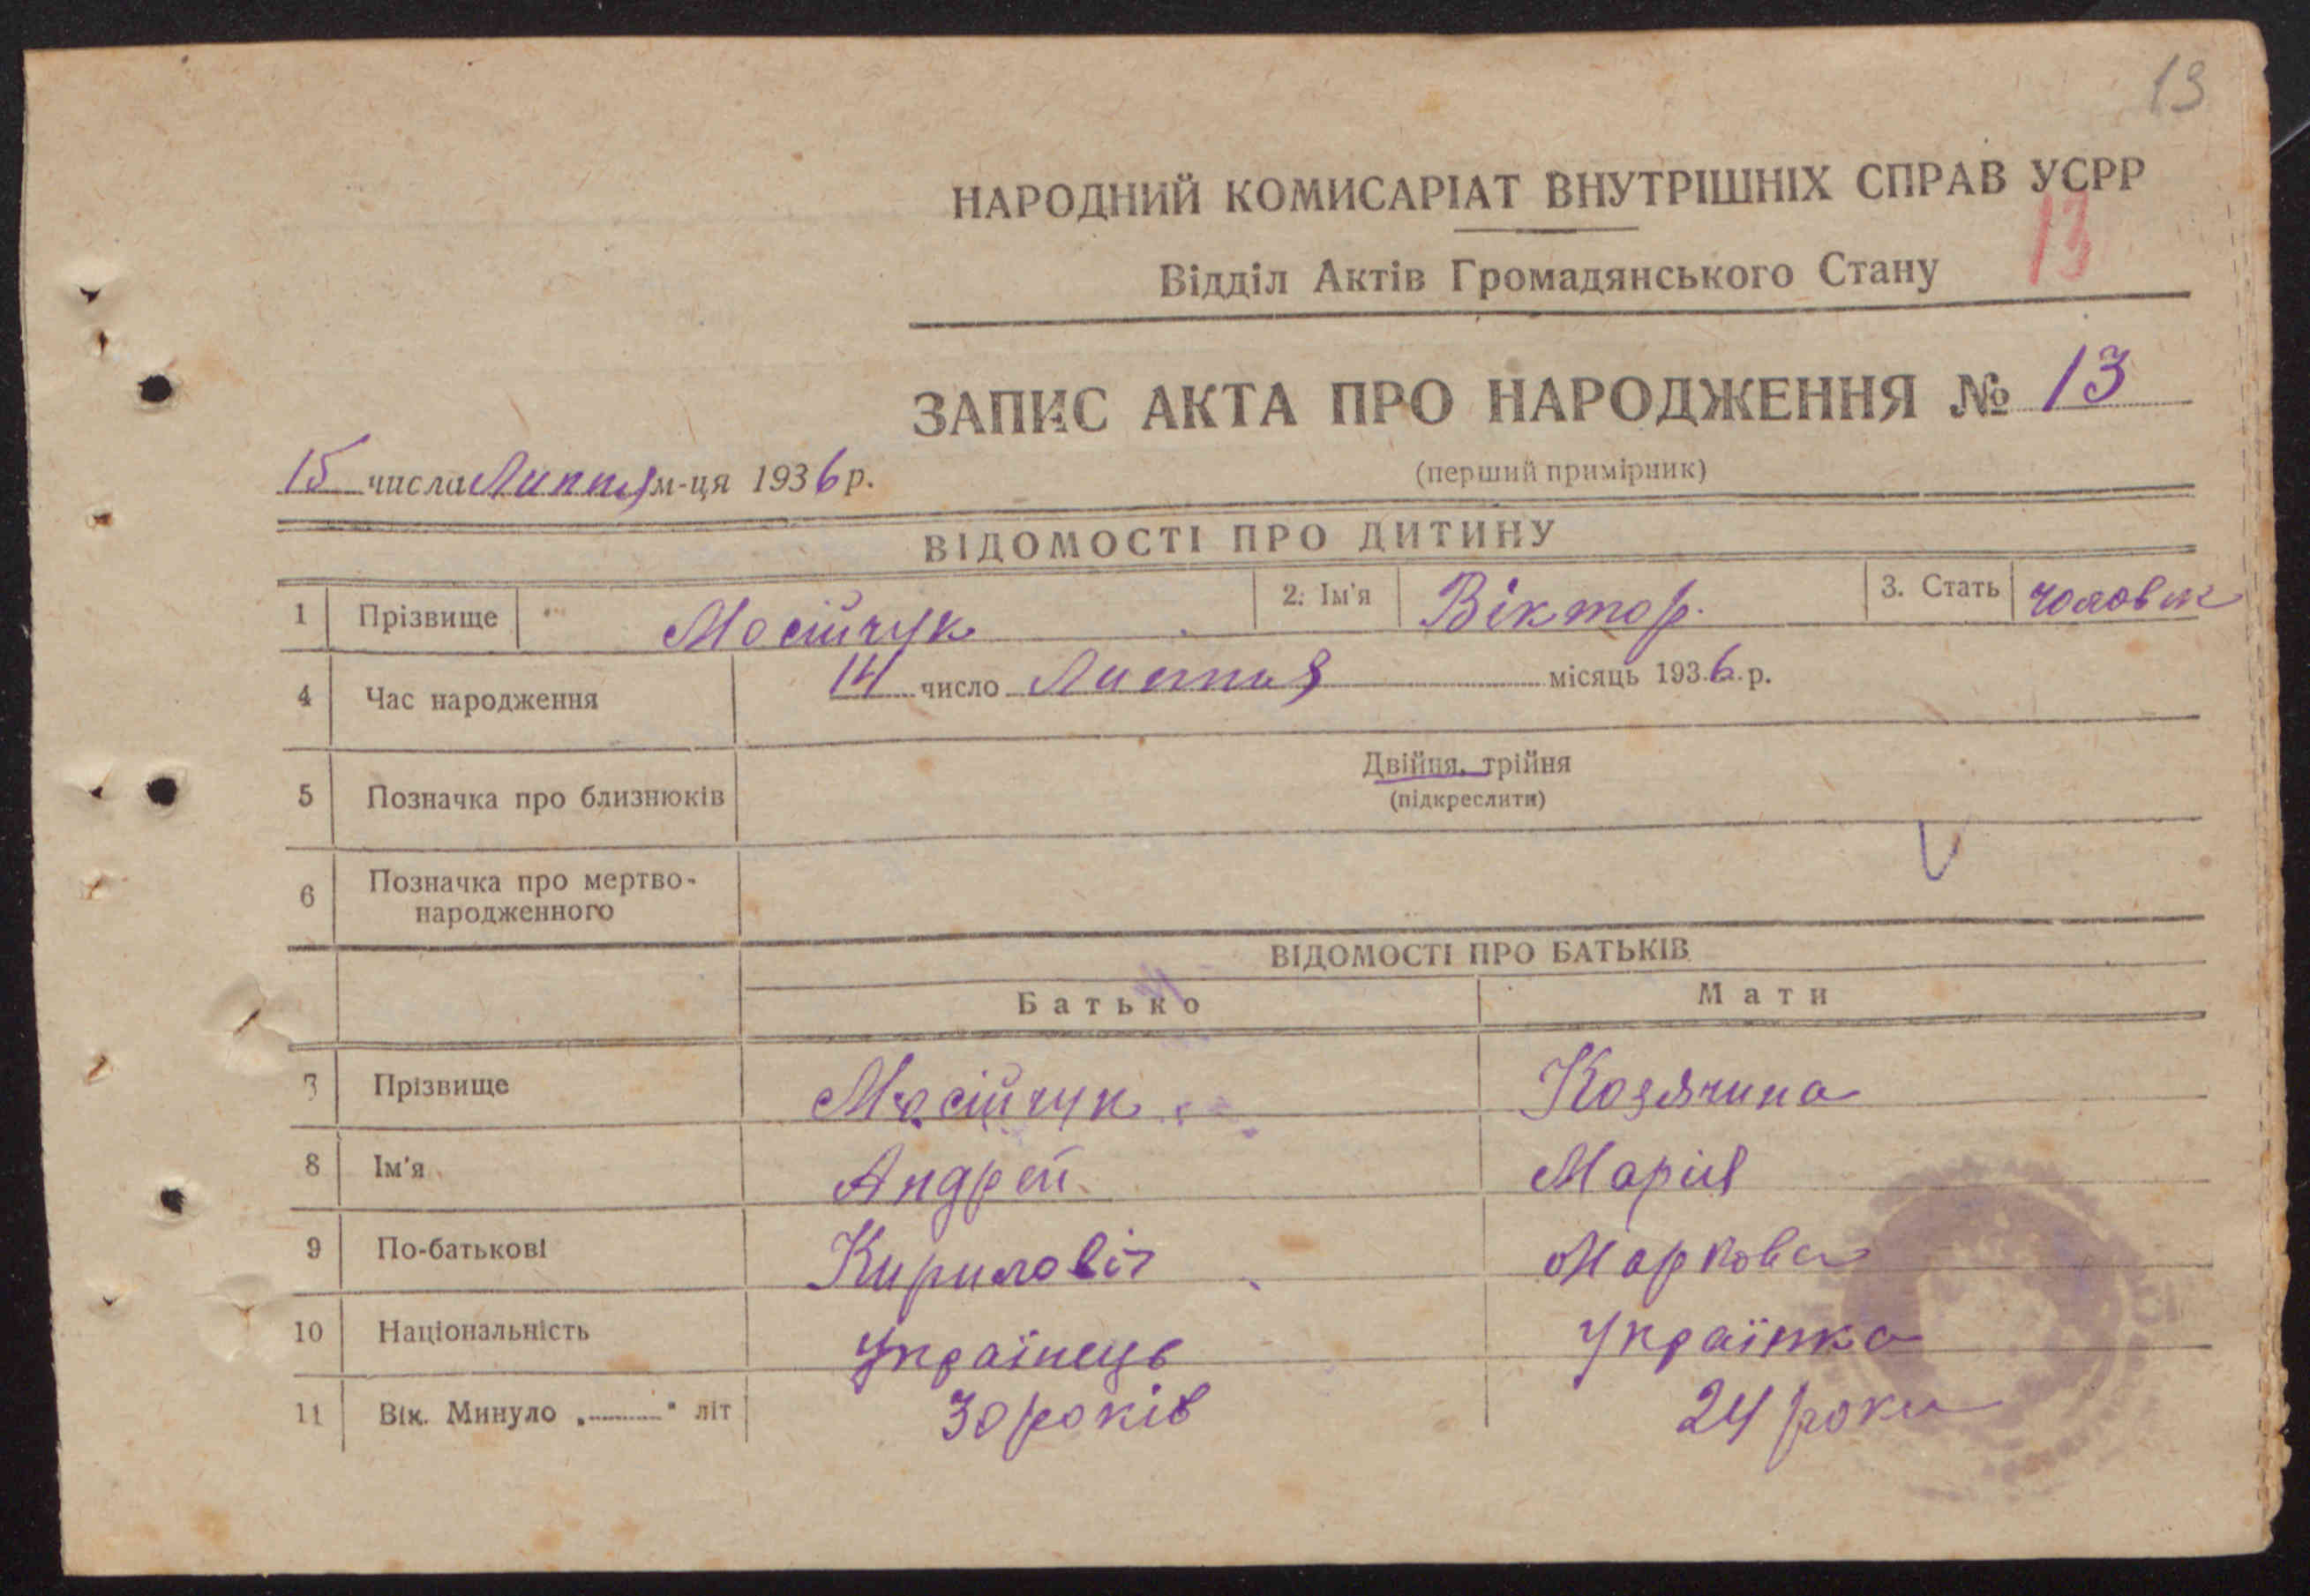 13
НАРОДНИЙ КОМИСАРІАТ ВНУТРІШНІХ СПРАВ УСРР
13
Відділ Актів Громадянського Стану
ЗАПИС АКТА ПРО НАРОДЖЕННЯ № 13
15 числа Липня м-ця 1936 р.
(перший примірник)
ВІДОМОСТІ ПРО ДИТИНУ
1 Прізвище Мосійчук 2. Ім'я Віктор. 3. Стать чоловік
4 Час народження 14 число Липня місяць 1936 р.
5 Позначка про близнюків Двійня, трійня
(підкреслити)
6 Позначка про мертво-
народженного
ВІДОМОСТІ ПРО БАТЬКІВ
Батько Мати
7 Прізвище Мосійчук Козячина
8 Ім'я Андрей Марія
9 По-батькові Кириловіч Маркова
10 Національність Українець Українка
11 Вік. Минуло „ " літ 30 років 24 роки